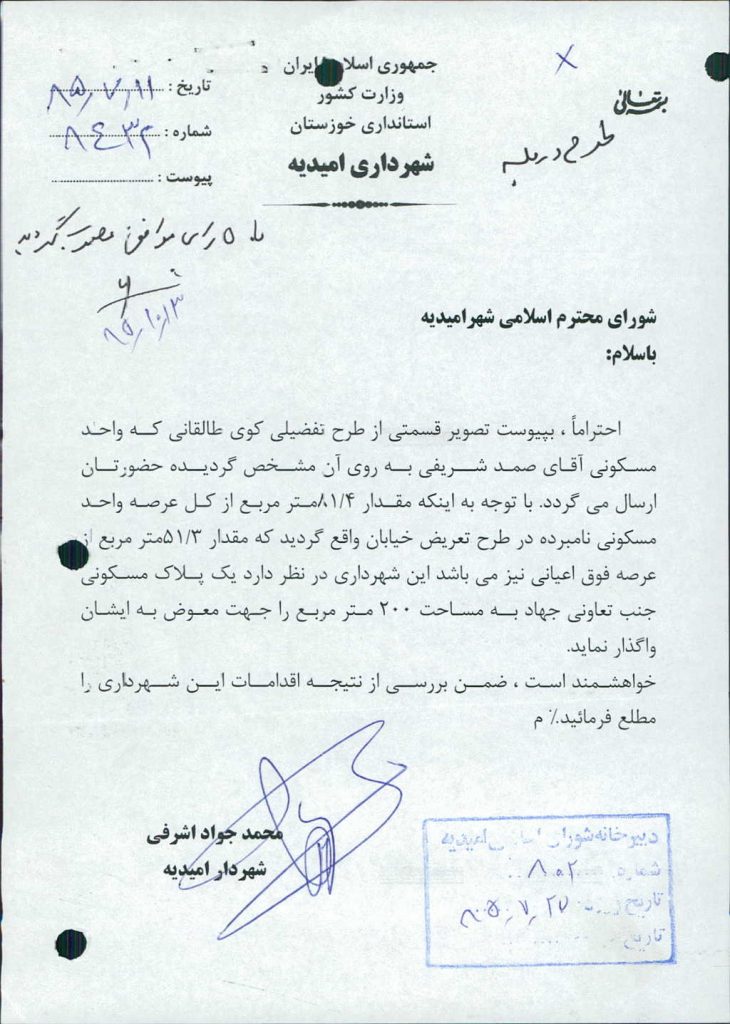 بسمه تعالی
جمهوری اسلامی ایران
وزارت کشور
استانداری خوزستان
شهرداری امیدیه
تاریخ : ۸۵/۷/۱۱
شماره : ۸۴۳۳
پیوست :
طرح در جلسه
با ۵ رای موافق مصوب گردید
شورای محترم اسلامی شهرامیدیه
باسلام:
احتراماً ، بپیوست تصویر قسمتی از طرح تفضیلی کوی طالقانی که واحد
مسکونی آقای صمد شریفی به روی آن مشخص گردیده حضورتان
ارسال می گردد. با توجه به اینکه مقدار ۸۱/۴متر مربع از کل عرصه واحد
مسکونی نامبرده در طرح تعریض خیابان واقع گردید که مقدار ۵۱/۳متر مربع از
عرصه فوق اعیانی نیز می باشد این شهرداری در نظر دارد یک پلاک مسکونی
جنب تعاونی جهاد به مساحت ۲۰۰ متر مربع را جهت معوض به ایشان
واگذار نماید.
خواهشمند است ، ضمن بررسی از نتیجه اقدامات این شهرداری را
مطلع فرمائید.٪ م
محمد جواد اشرفی
شهردار امیدیه
دبیرخانه شورای اسلامی امیدیه
شماره ۸۰۲
تاریخ ۸۵/۷/۲۷
تاریخ